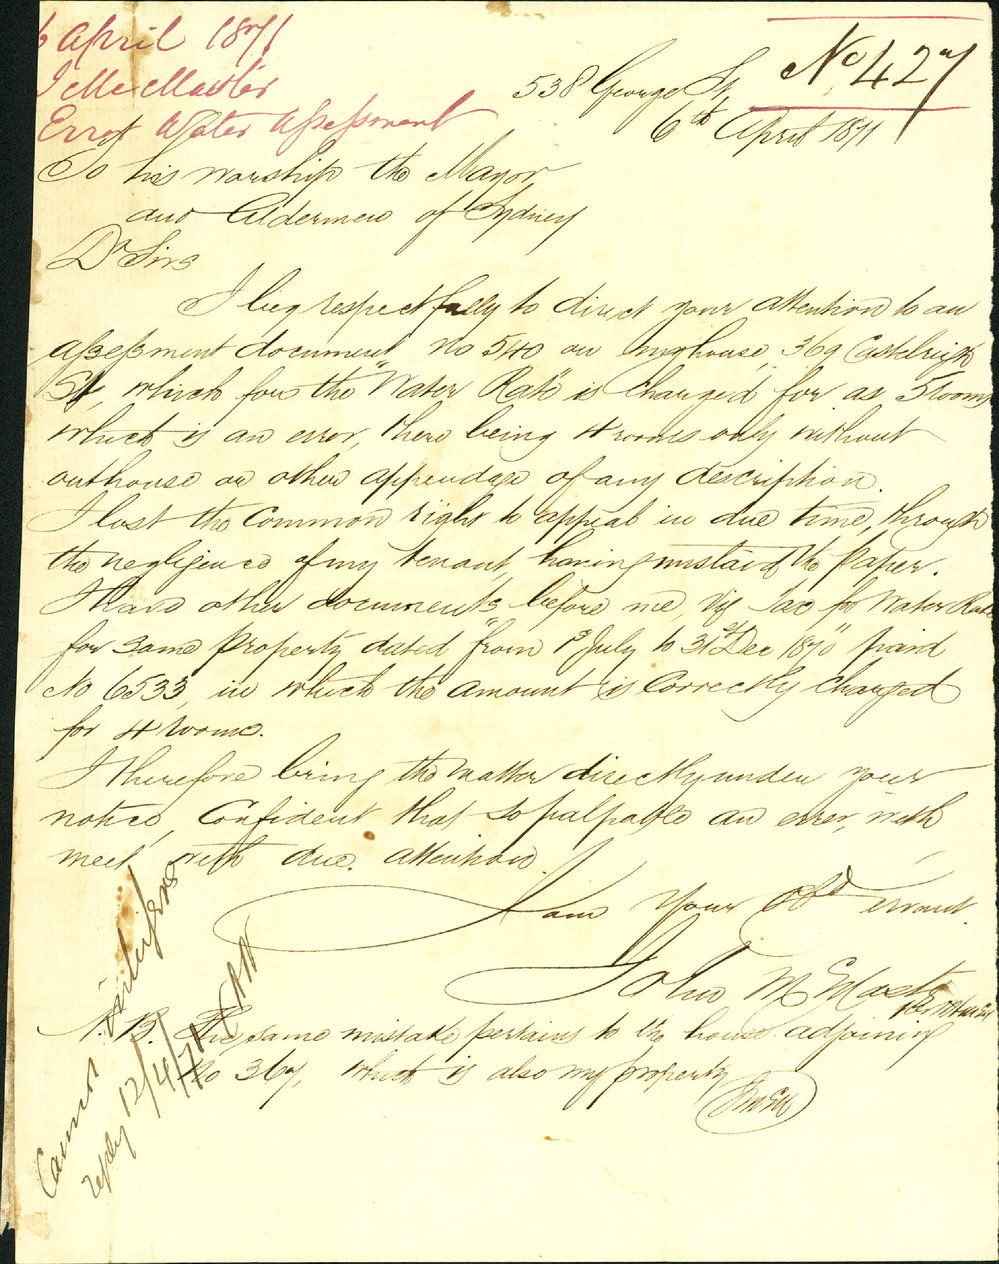 6 April 1871
J McMaster
Error Water Assessment
No 427
538 George St
6th April 1871
To his worship the Mayor
and Aldermen of Sydney
Dr Sirs
I beg respectfully to direct your attention to an
assessment document, No 540 on my house, 369 Castlereigh
St, which for the "Water Rate" is charged for as 5 rooms
which is an error, there being 4 rooms only without
outhouse or other appendage of any description.
I lost the common right to appeal in due time, through
the negligence of my tenant, having mislaid the paper.
I have other documents before me, viz Tax for Water Rate
for same property dated "from 1st July to 31st Dec 1870" paid
No 6533, in which the amount is correctly charged
for 4 rooms.
I therefore bring the matter directly under your
notice, confident that so palpable an error, will
meet with due attention.
I am Your Obd servant
John McMaster
N.B. The same mistake pertains to the house adjoining
No 367, which is also my property
JMcM
Cannot interfere
reply 12/4/71